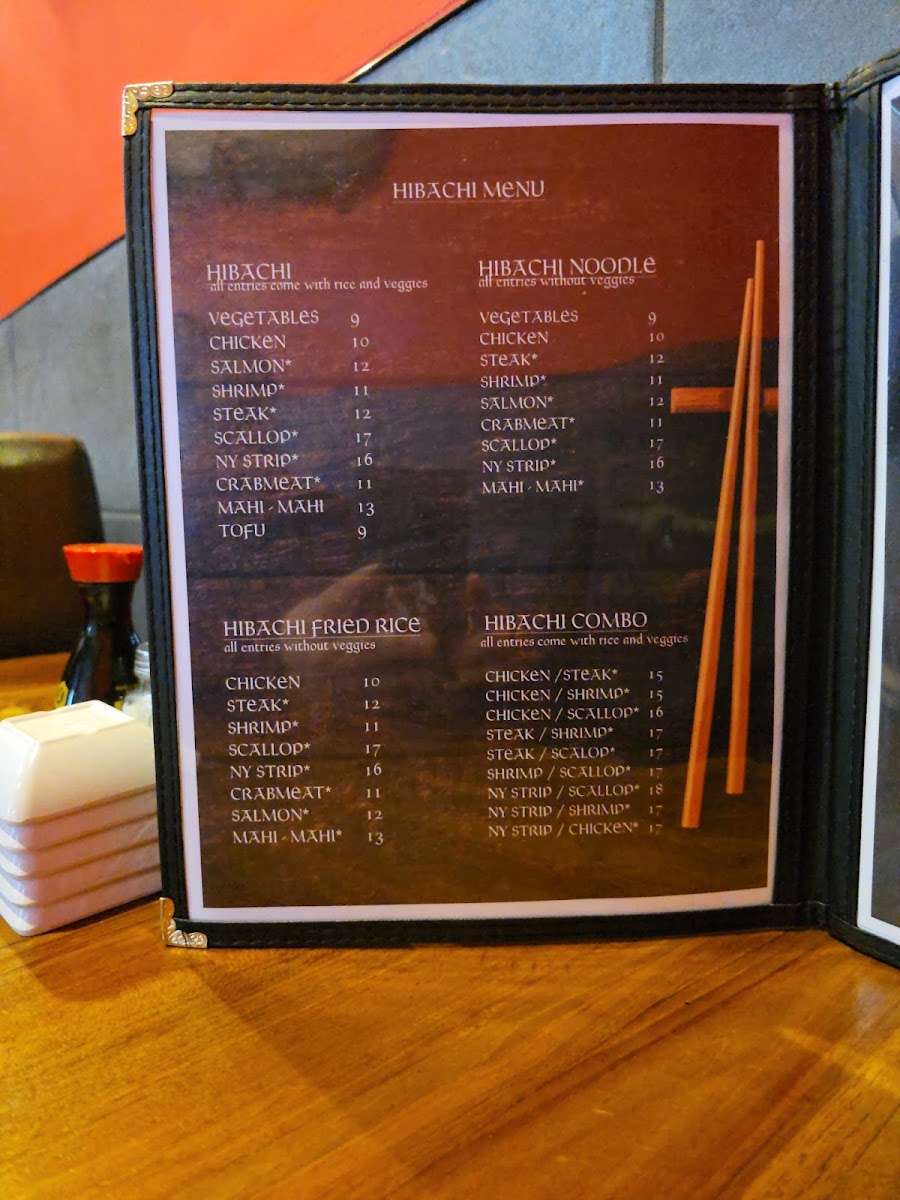 HIBACHI MENU
HIBACHI
all entries come with rice and veggies
VEGETABLES 9
CHICKEN 10
SALMON* 12
SHRIMP* 11
STEAK* 12
SCALLOP* 17
NY STRIP* 16
CRABMEAT* 11
MAHI - MAHI 13
TOFU 9
HIBACHI NOODLE
all entries without veggies
VEGETABLES 9
CHICKEN 10
STEAK* 12
SHRIMP* 11
SALMON* 12
CRABMEAT* 11
SCALLOP* 17
NY STRIP* 16
MAHI - MAHI* 13
HIBACHI FRIED RICE
all entries without veggies
CHICKEN 10
STEAK* 12
SHRIMP* 11
SCALLOP* 17
NY STRIP* 16
CRABMEAT* 11
SALMON* 12
MAHI - MAHI* 13
HIBACHI COMBO
all entries come with rice and veggies
CHICKEN /STEAK* 15
CHICKEN / SHRIMP* 15
CHICKEN / SCALLOP* 16
STEAK / SHRIMP* 17
STEAK / SCALOP* 17
SHRIMP / SCALLOP* 17
NY STRIP / SCALLOP* 18
NY STRIP / SHRIMP* 17
NY STRIP / CHICKEN* 17